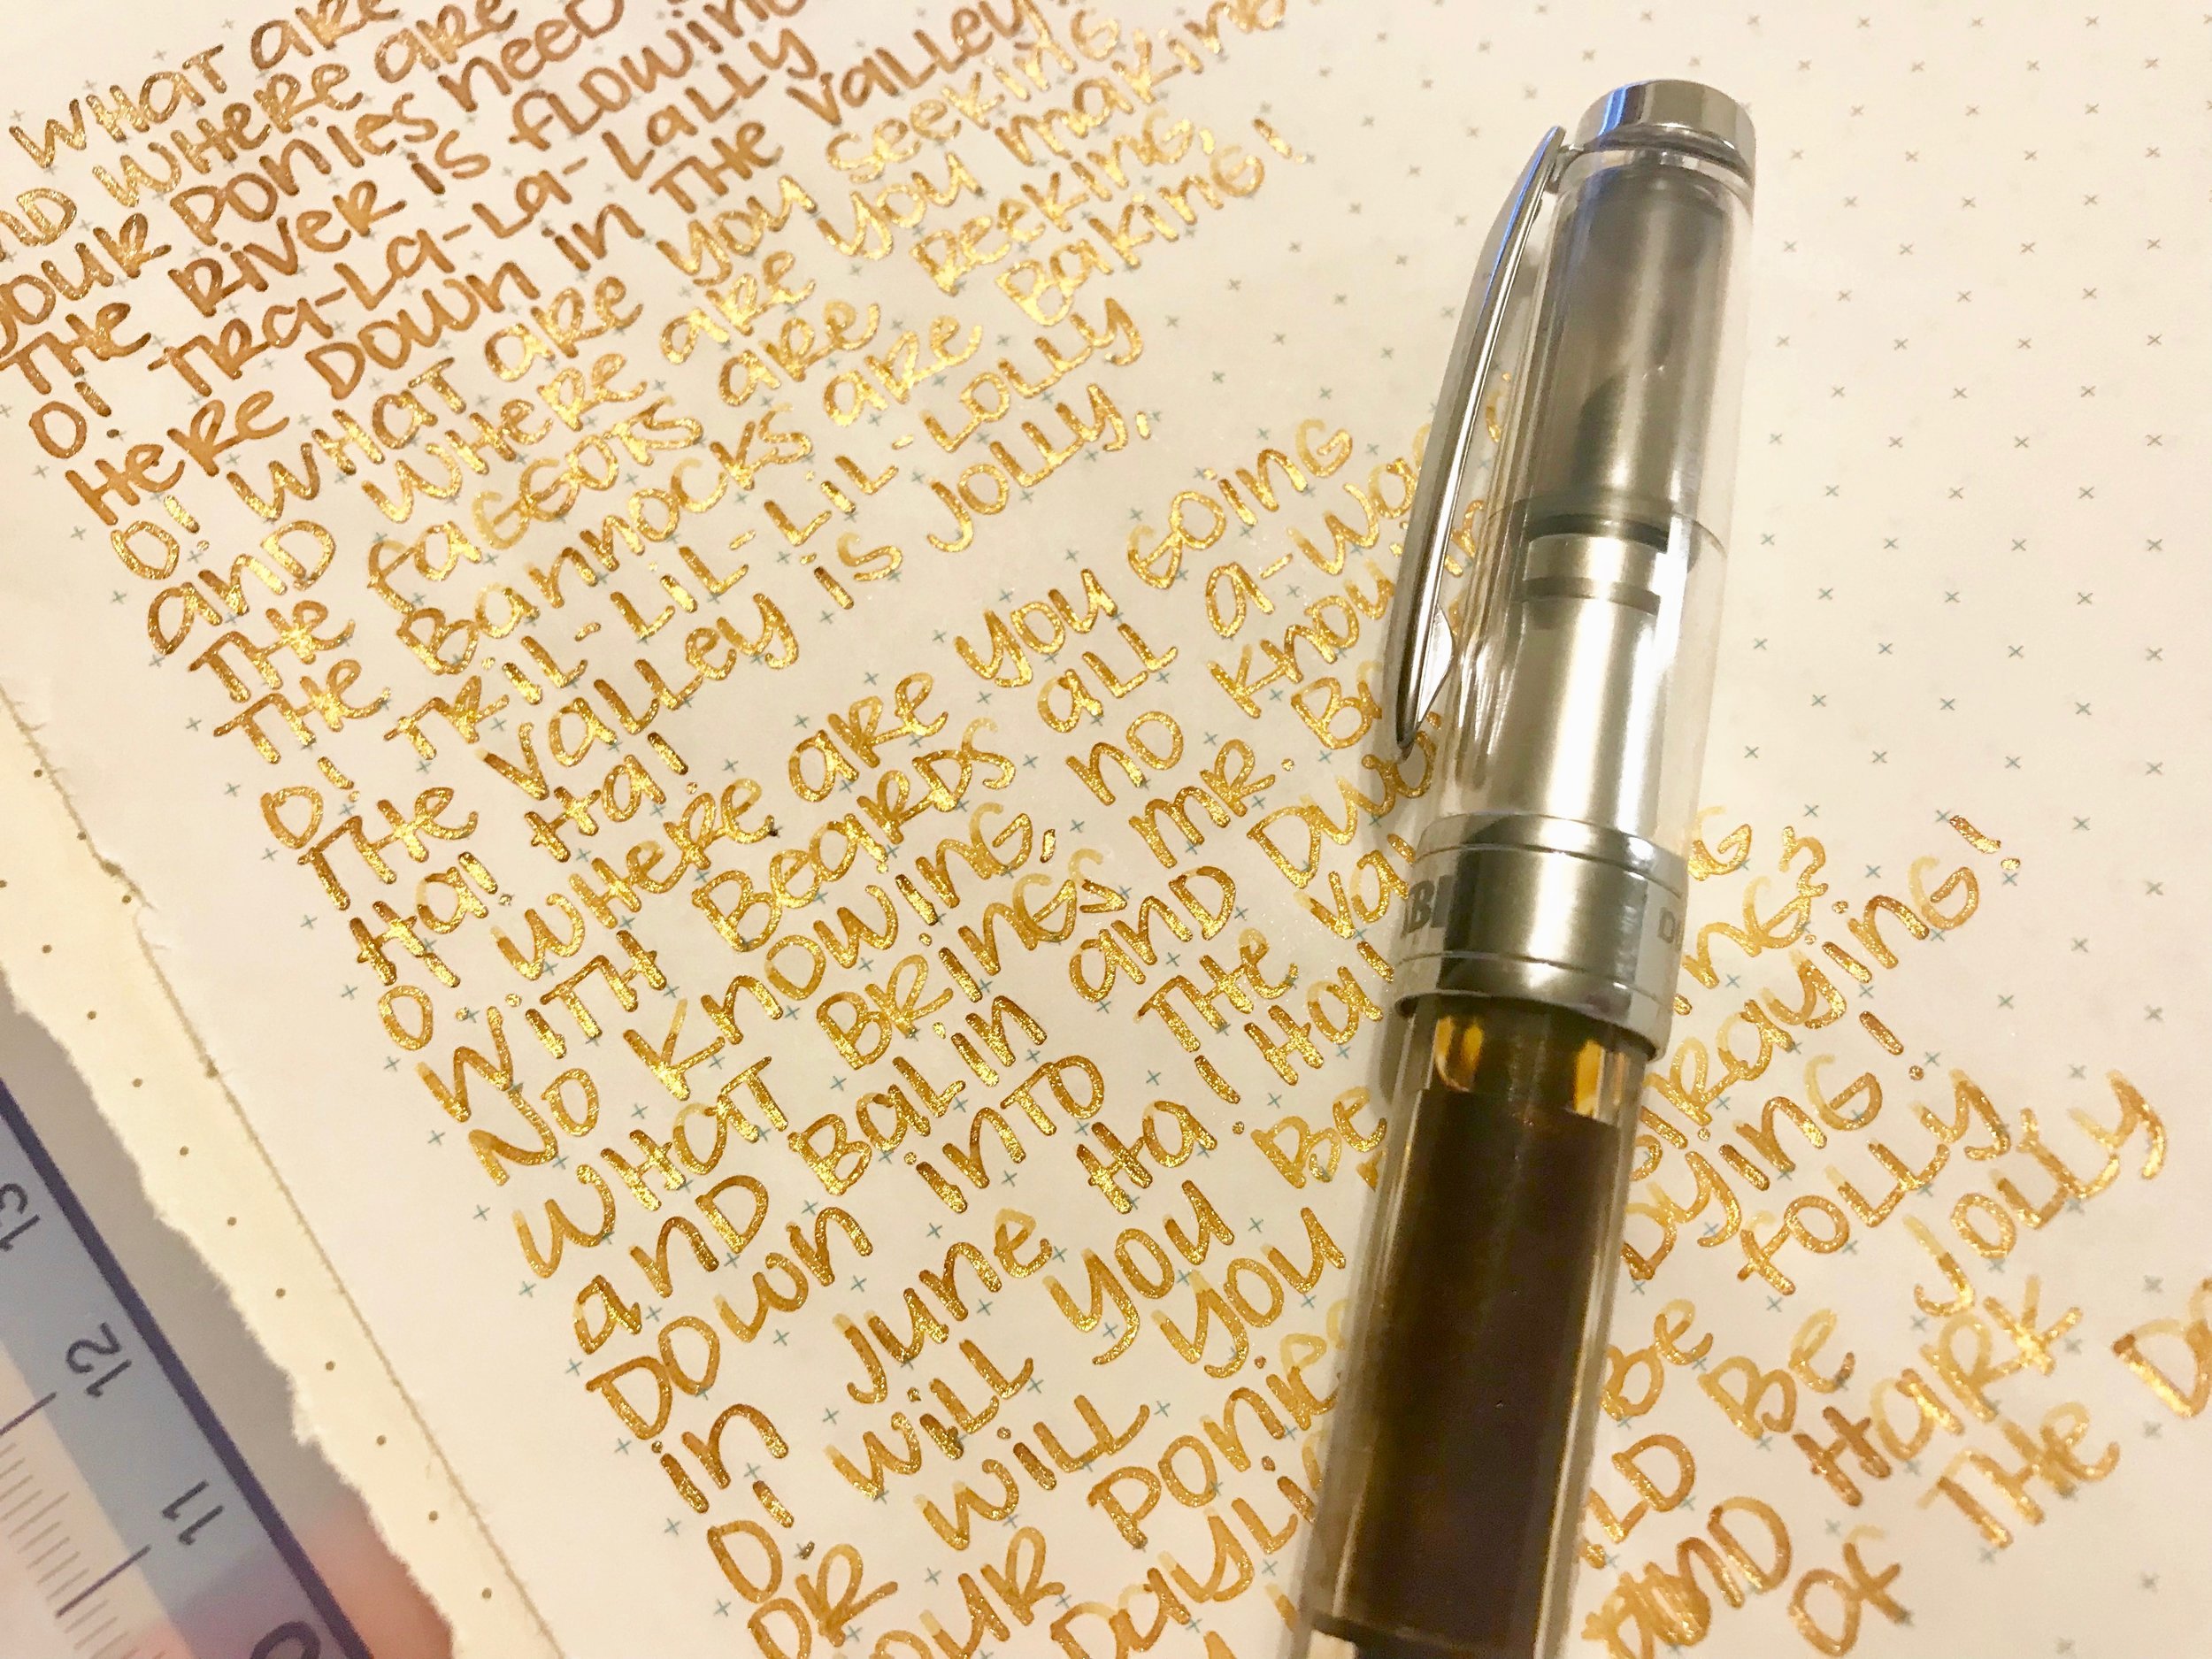 WHAT ARE
WHERE ARE
YOUR PONIES NEED
THE RIVER IS FLOWING
O! TRA-LA-LA-LALLY
HERE DOWN IN THE VALLEY!
O! WHAT ARE YOU SEEKING
AND WHERE ARE YOU MAKING
THE FAGGOTS ARE REEKING,
THE BANNOCKS ARE BAKING!
O! TRIL-LIL-LIL-LOLLY
THE VALLEY IS JOLLY,
HA! HA!
O! WHERE ARE YOU GOING
WITH BEARDS ALL A-WAG
NO KNOWING, NO KNOWIN
WHAT BRINGS MR. BA
AND BALIN AND DWA
DOWN INTO THE VAL
IN JUNE HA! HA!
O! WILL YOU BE
OR WILL YOU PRAYING!
YOUR PONIES DYING!
DAYLI
BE FOLLY
LD BE JOLLY
AND HARK
OF THE
13
12
11